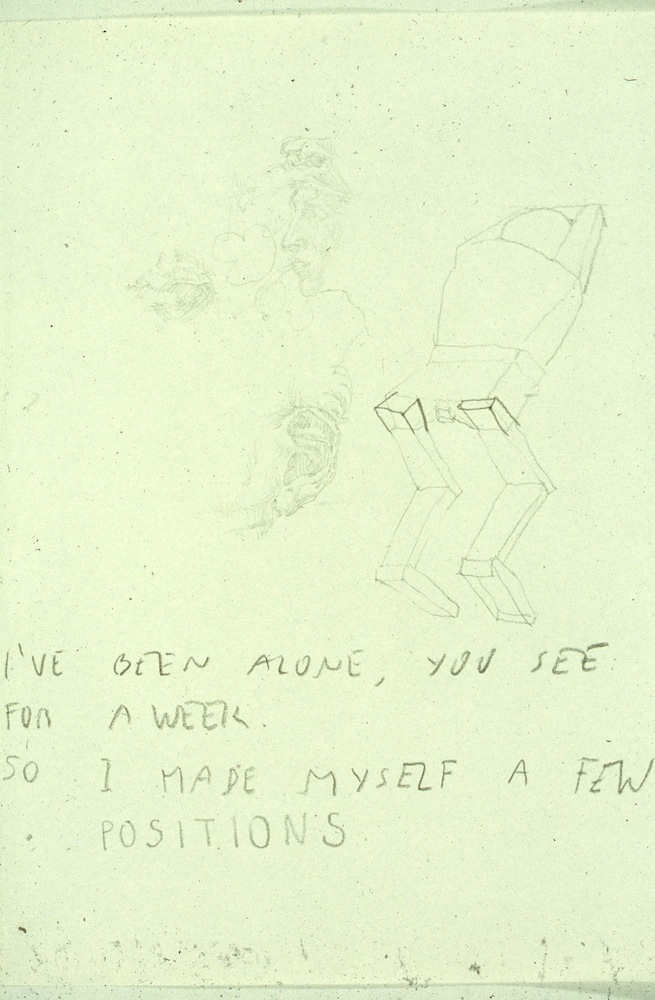 I'VE BEEN ALONE, YOU SEE
FOR A WEEK.
SO I MADE MYSELF A FEW
POSITIONS